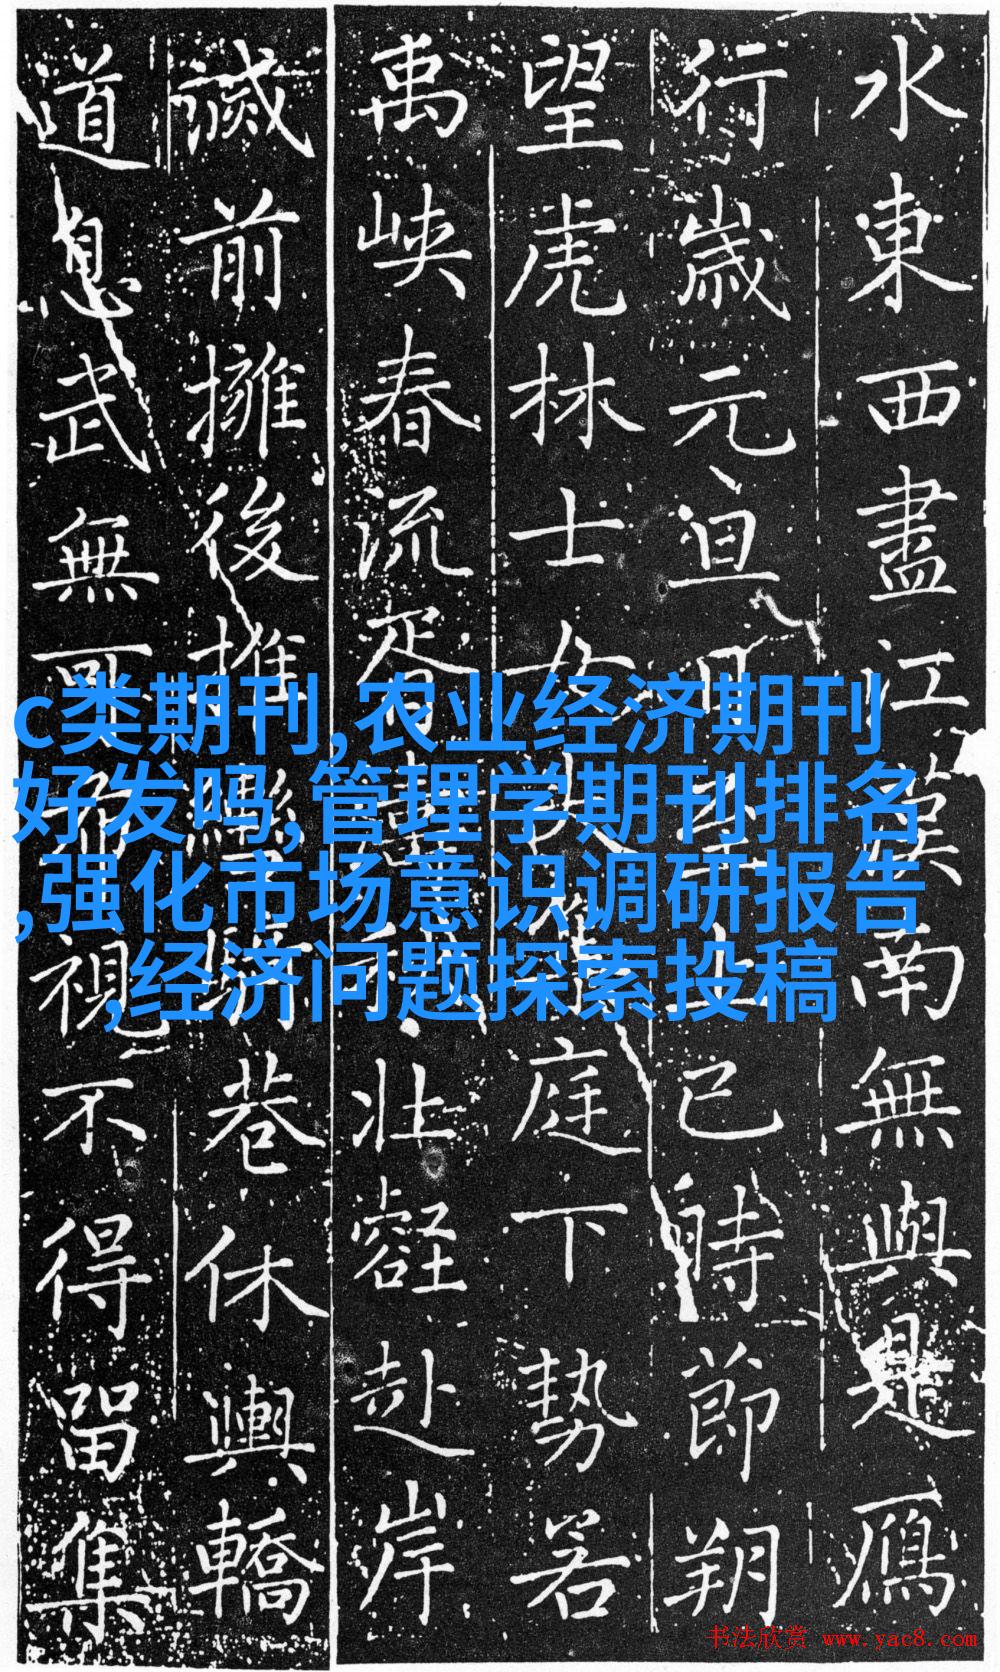 水東西盡江漢南無與是鴈
行歲元旦明上巳時節朔
望虎林士女庭下勢若
禹峽春流胥壯壑赴岸
滅前擁後推巷休輿轎
道息武無視不得留集
c类期刊,农业经济期刊
好发吗,管理学期刊排名
,强化市场意识调研报告
,经济问题探索投稿
书法欣赏 www.yac8.com